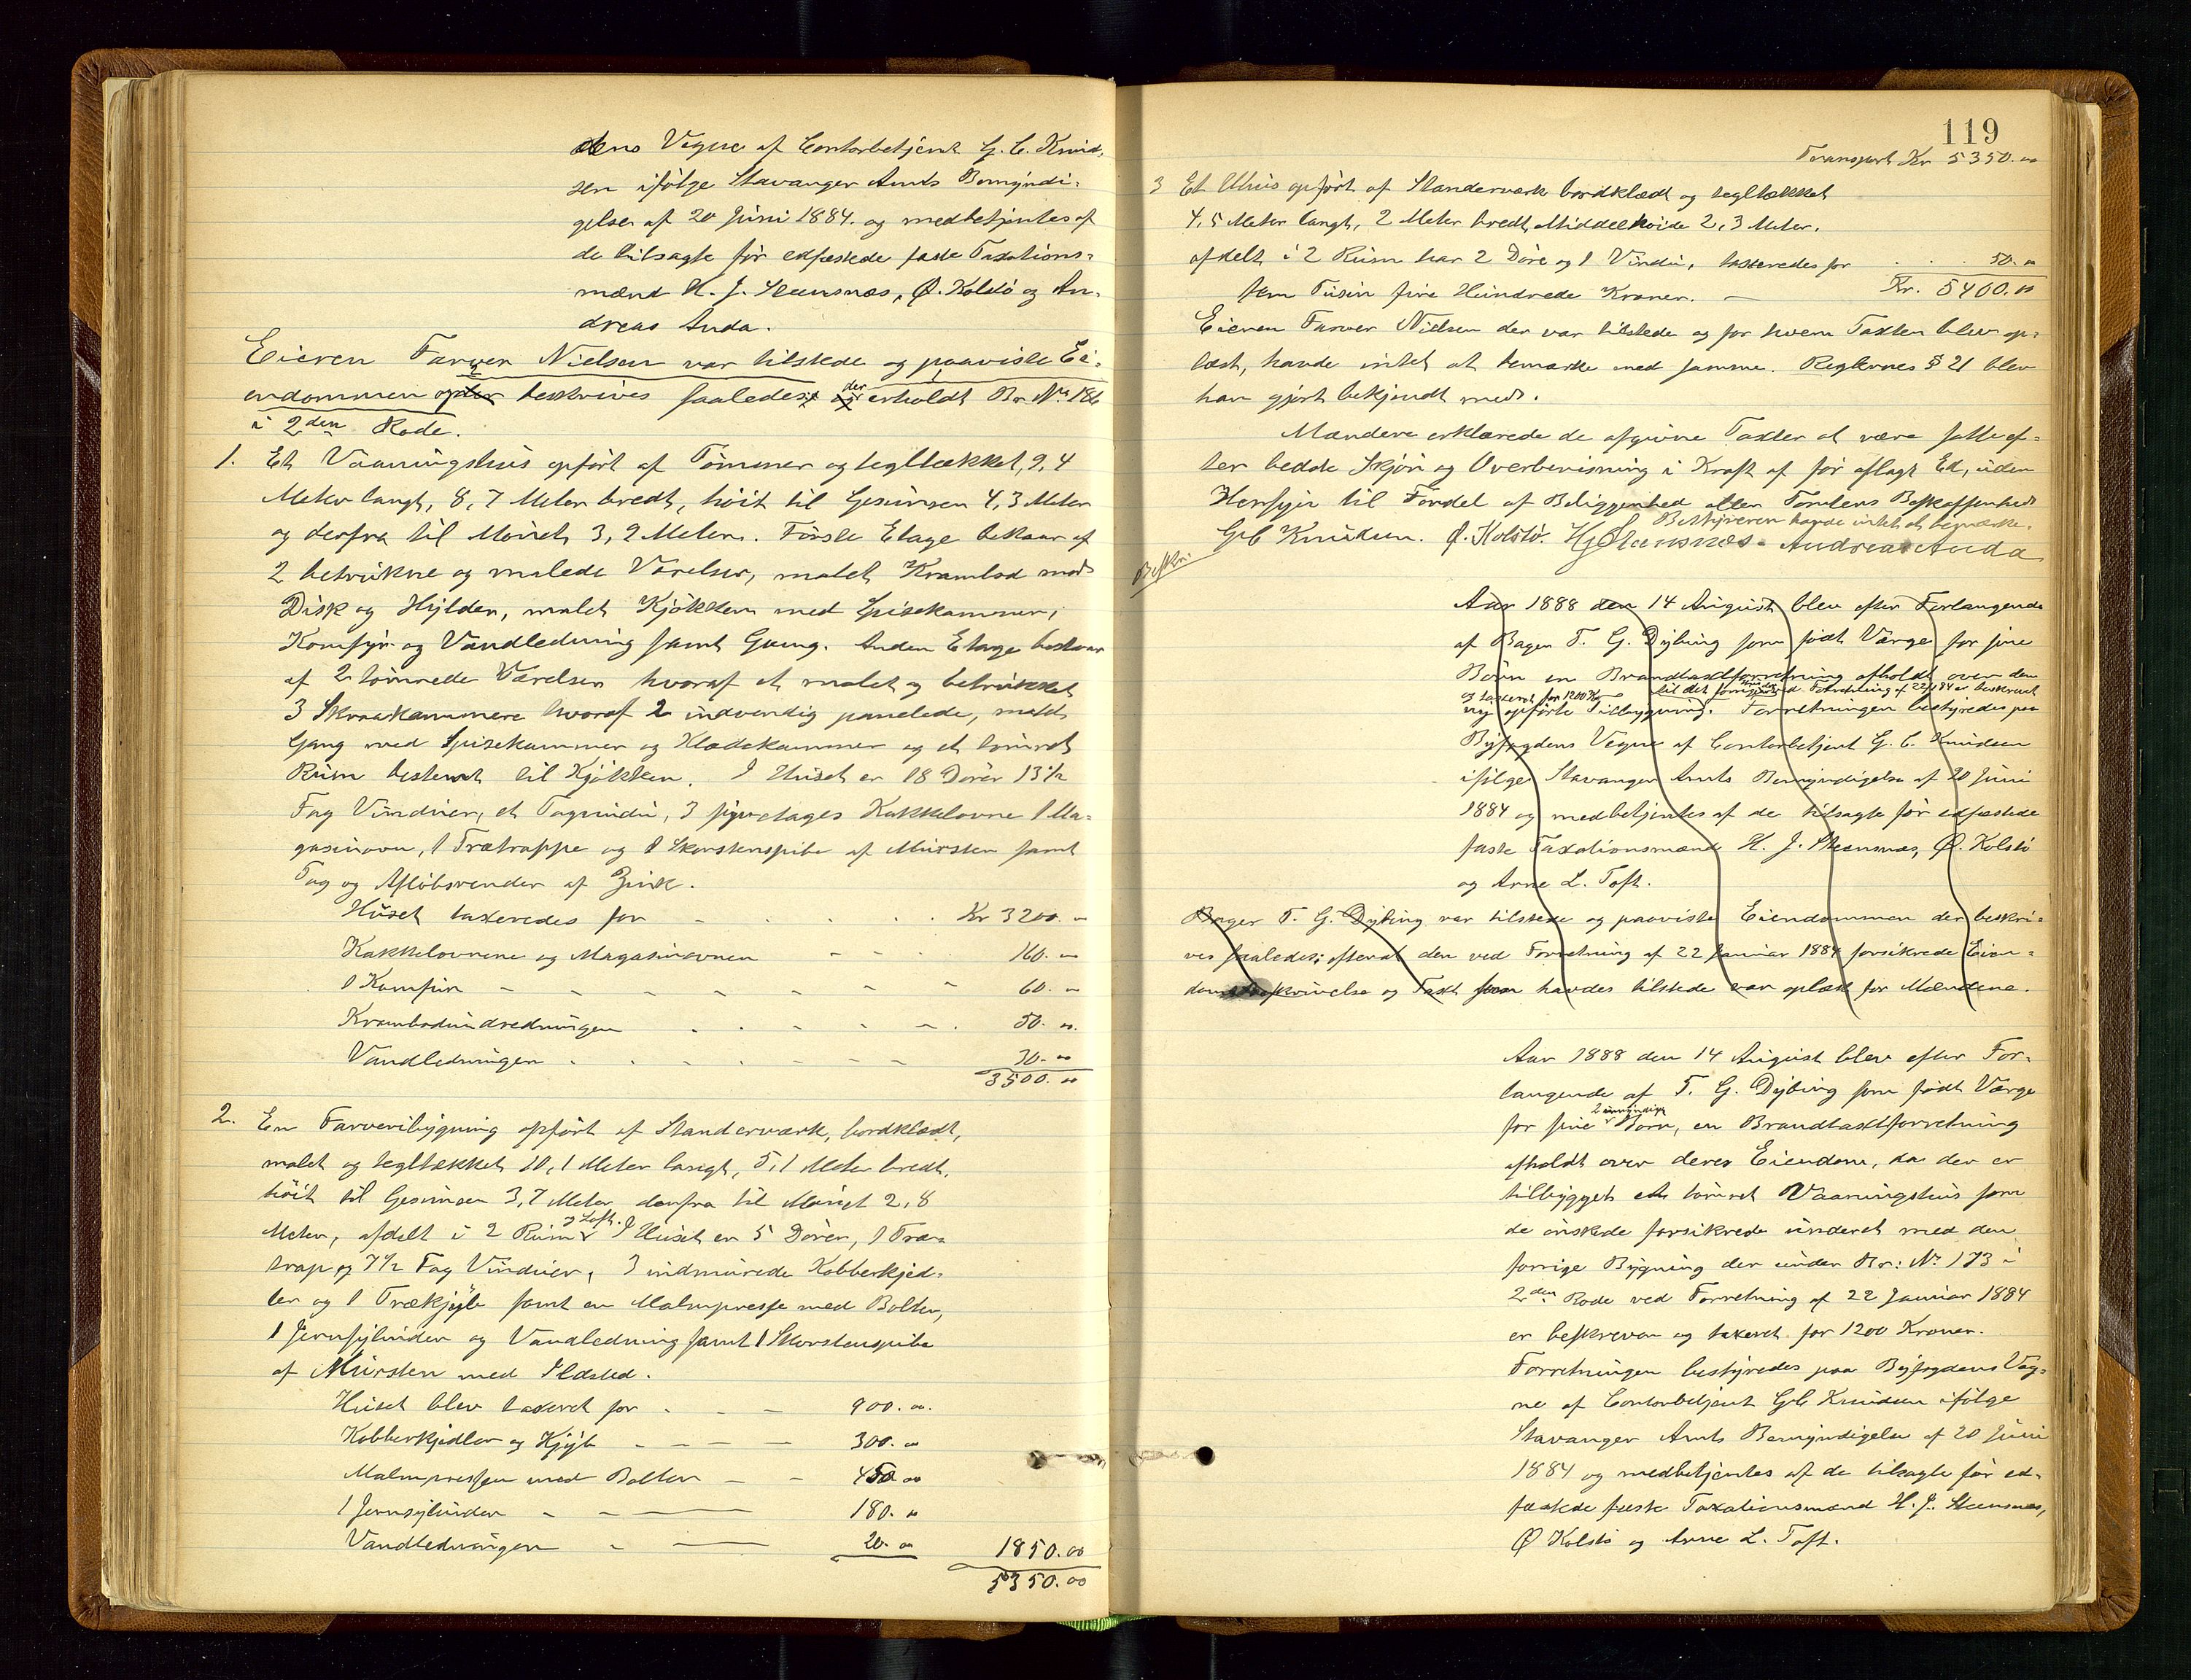 dens Vegne af Contorbetjent G. C. Knud-
sen ifölge Stavanger Amts Bemÿndi-
gelse af 20 Juni 1884. og medbetjentes af
de tilsagte för edfæstede faste Taxations-
mænd H. J. Steensnæs, Ø. Kolstö og An-
dreas Anda.
Eieren Farver Nielsen var tilstede og paaviste Ei-
endommen der beskrives saaledes: der erholdt Br. No. 186
i 2den Rode.
1. Et Vaaningshus opfört af Tömmer og tegltækket, 9,4
Meter langt, 8,7 Meter bredt, höit til Gesimsen 4,3 Meter
og derfra til Mönet 3,2 Meter. Förste Etage bestaar af
2 betrukne og malede Værelser, malet Krambod med
Disk og Hylder, malet Kjökken med Spisekammer,
Komfyr og Vandledning samt Gang. Anden Etage bestaar
af 2 tömrede Værelser hvoraf et malet og betrukket
3 Skraakammere hvoraf 2 indvendig panelede, malet
Gang med Spisekammer og Klædekammer og et tömret
Rum bestemt til Kjökken. I Huset er 18 Dörer 13 1/2
Fag Vinduer, et Tagvindu, 3 Etages Kakkelovne 1 Ma-
gasinovn, 1 Trætrappe og 1 Skorstenspibe af Mursten samt
Tag og Aflöbsrender af Zink.
Huset taxeredes for Kr 3200.-
Kakkelovnene og Magasinovnen 160.-
1 Komfur 60.-
Krambodindredningen 50.00
Vandledningen 30.00
3500.00
2. En Farveribygning opfört af Standerværk, bordklædt,
malet og tegltækket 10,1 Meter langt, 5,1 Meter bredt,
höit til Gesimsen 3,7 Meter derfra til Mönet 2,8
Meter, afdelt i 2 Rum og Loft. I Huset er 5 Dörer, 1 Træ-
trap og 7 1/2 Fag Vinduer, 3 indmurede Kobberkjed-
ler og 1 Trækjyb samt en Malmpresse med Bolter,
1 Jernsylinder og Vandledning samt 1 Skorstenspibe
af Mursten med Ildsted.
Huset blev taxeret for 900.00
Kobberkjedler og Kjyb 300.00
Malmpressen med Bolter 450.00
1 Jernsylinder 180.00
Vandledningen 20.00 1850.00
5350.00
119
Transport Kr 5350.00
3 Et Uhus opfört af Standerværk bordklædt og tegltækket
4,5 Meter langt, 2 Meter bredt, Middelhöide 2,3 Meter.
afdelt i 2 Rum har 2 Döre og 1 Vindu, taxeredes for 50.00
fem Tusin fire Hundrede Kroner. Kr. 5400.00
Eieren Farver Nielsen der var tilstede og for hvem Taxten blev op-
læst, havde intet at bemærke med samme. Reglernes § 21 blev
han gjort bekjendt med.
Mændene erklærede de afgivne Taxter at være satte ef-
ter bedste Skjön og Overbevisning i Kraft af för aflagt Ed, uden
Hensyn til Fordel af Beliggenhed eller Tomtens Beskaffenhed
Bestyreren havde intet at bemærke.
G C Knudsen. Ø. Kolstö. H J Steensnæs. Andreas Anda
Beskr:
Aar 1888 den 14 August blev efter Forlangende
af Bager T. G. Dybing som födt Værge for sine
Börn en Brandtaxtforretning afholdt over den
og taxeret for 1200 Kr til det Forretning af 22/1 84 er beskrevet
ny opförte Tilbygning. Forretningen bestyredes paa
Byfogdens Vegne af Contorbetjent G. C. Knudsen
ifölge Stavanger Amts Bemyndigelse af 20 Juni
1884 og medbetjentes af de tilsagte för edfæstede
faste Taxationsmænd H. J. Steensnæs, Ø. Kolstö
og Arne L. Toft.
Bager T. G. Dybing var tilstede og paaviste Eiendommen der beskri-
ves saaledes: efterat den ved Forretning af 22 Januar 1884 forsikrede Eien-
doms Beskrivelse og Taxt havdes tilstede var oplæst for Mændene.
Aar 1888 den 14 August blev efter For-
langende af T. G. Dybing som födt Værge
for sine 2 umyndige Börn, en Brandtaxtforretning
afholdt over deres Eiendom, da der er
tilbygget et tömret Vaaningshus som
de önskede forsikrede underet med den
forrige Bygning der under Br: No 173 i
2den Rode ved Forretning af 22 Januar 1884
er beskreven og taxeret for 1200 Kroner.
Forretningen bestyredes paa Byfogdens Veg-
ne af Contorbetjent G C Knudsen ifölge
Stavanger Amts Bemyndigelse af 20 Juni
1884 og medbetjentes af de tilsagte för ed-
fæstede faste Taxationsmænd H. J. Steensnæs,
Ø Kolstö og Arne L. Toft.